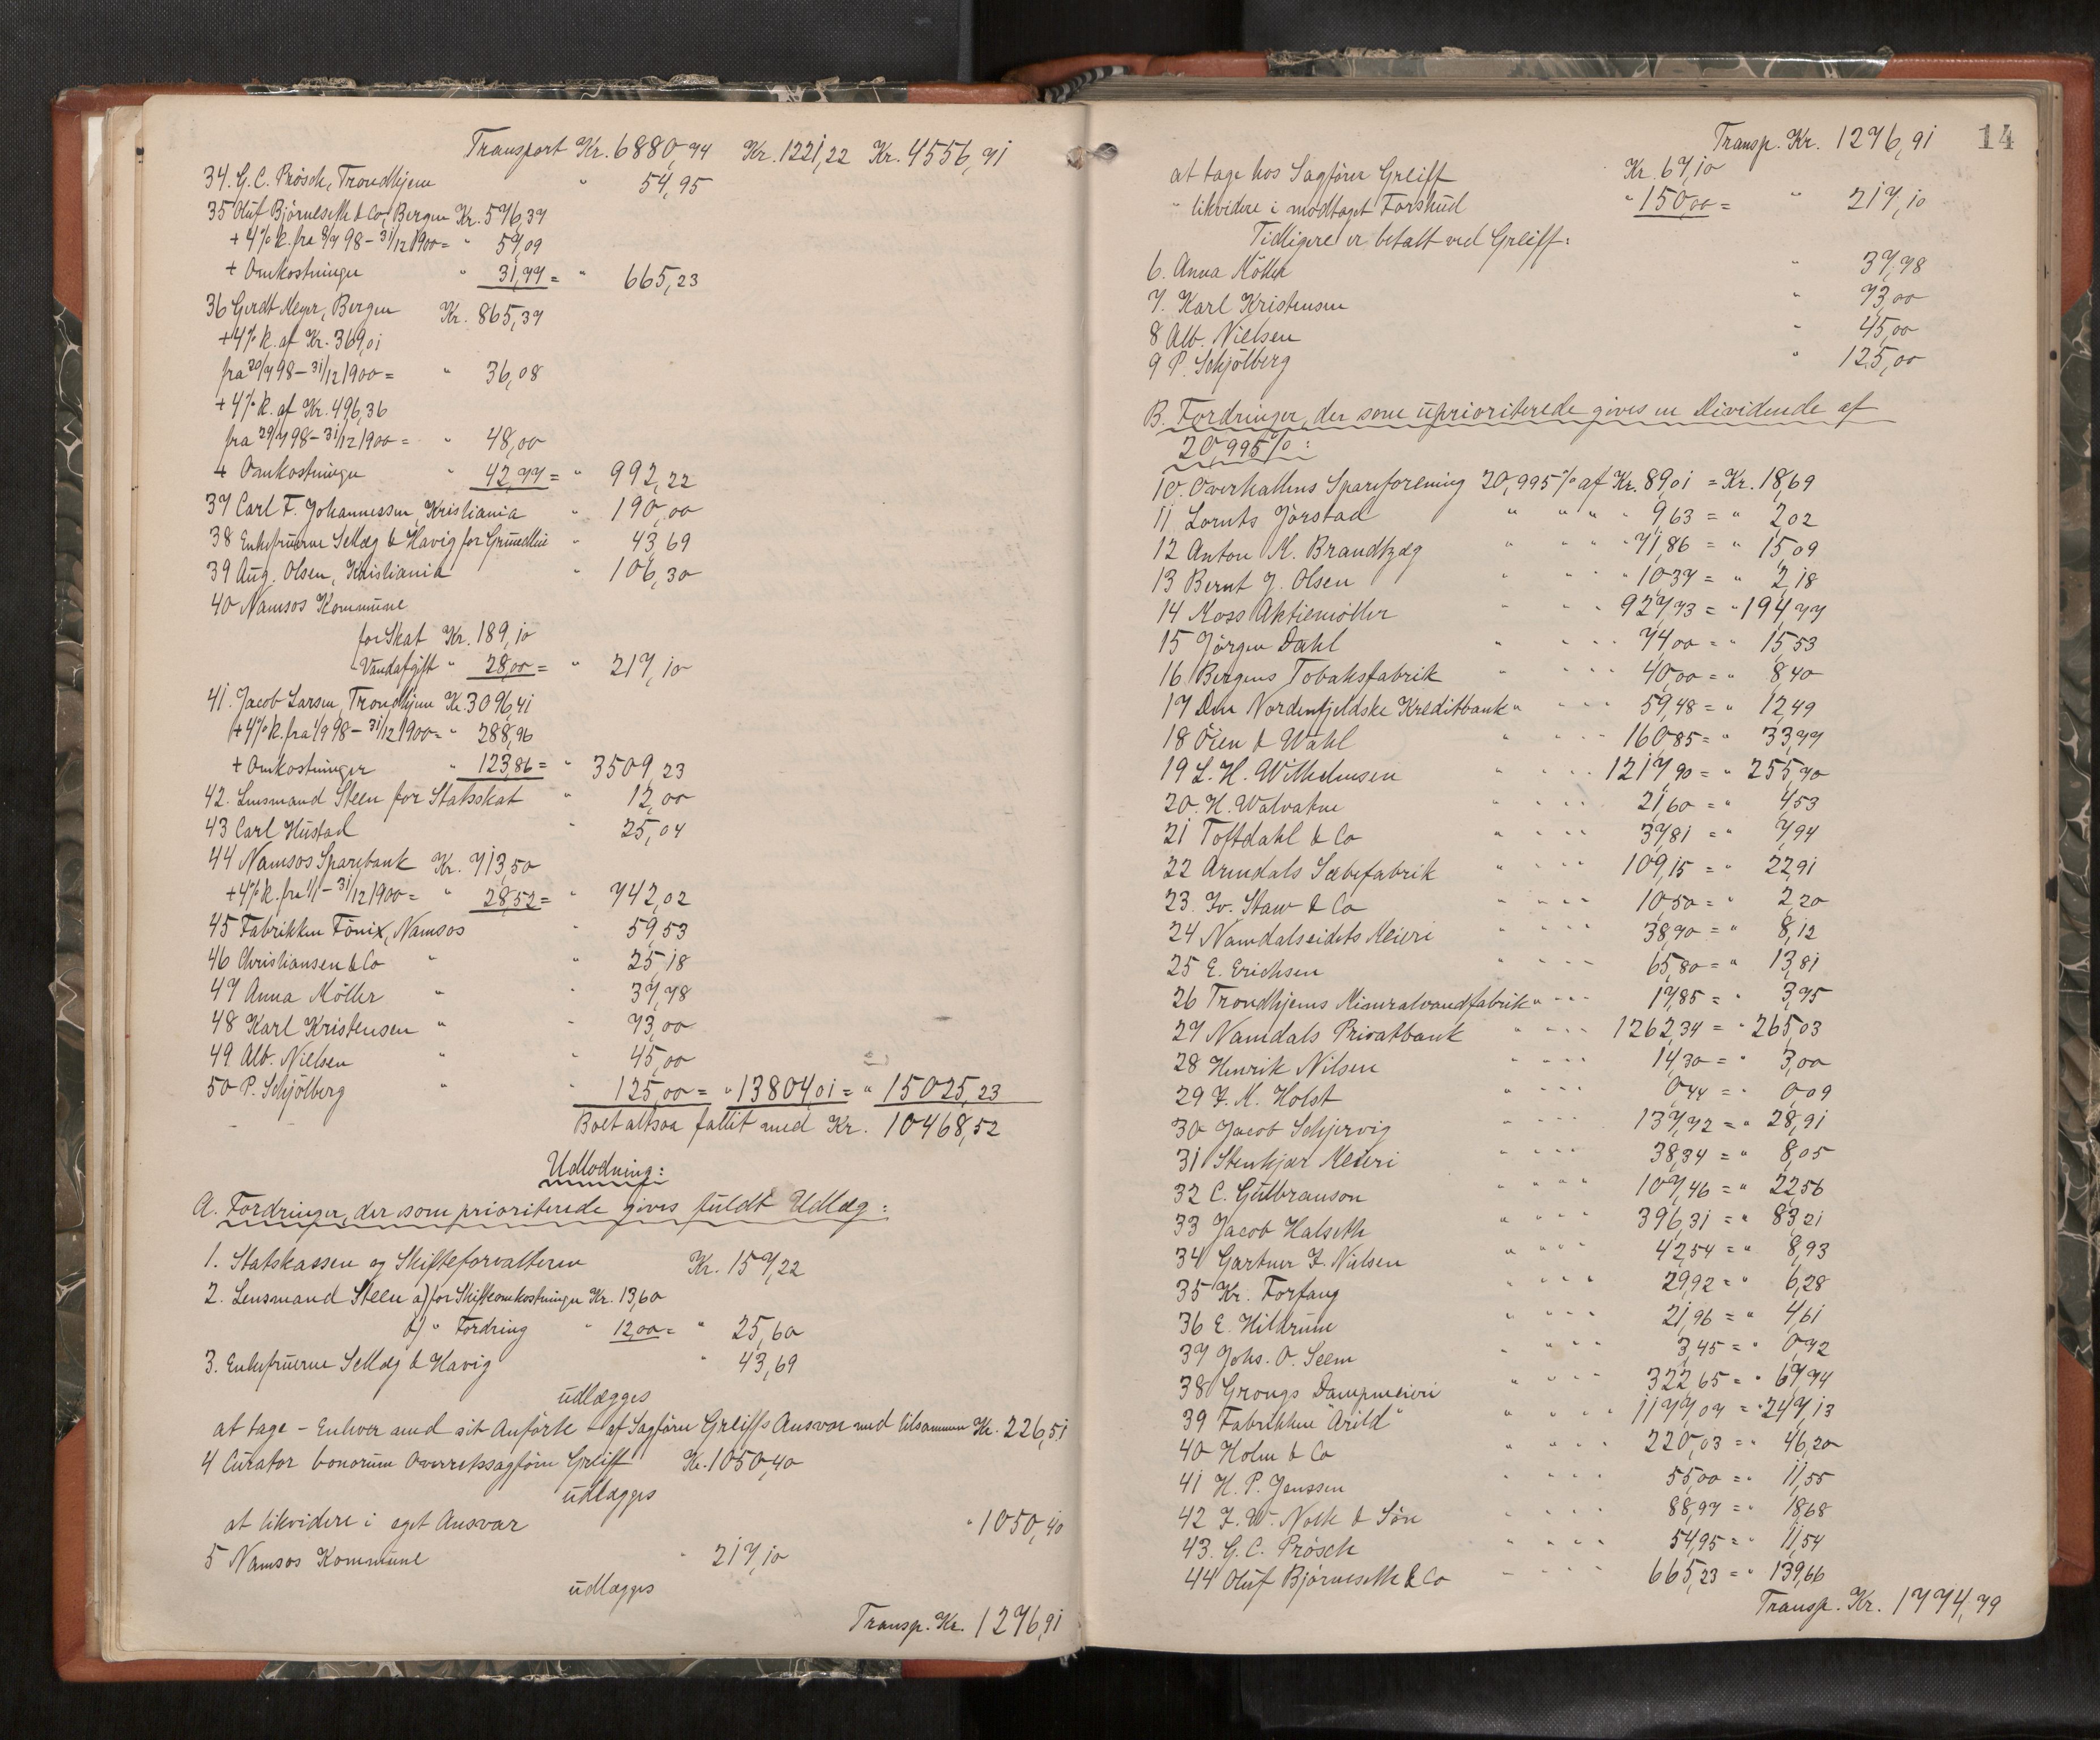 Transport Kr. 6880,74 Kr. 1221,22 Kr. 4556,71
34. G. C. Prösch, Trondhjem " 54,95
35 Oluf Bjørneseth & Co, Bergen Kr. 576,37
+ 4% R. fra 8/7 98 - 31/12 1900 = " 57,09
+ Omkostninger " 31,77 = " 665,23
36 Gerdt Meyer, Bergen Kr. 865,37
+ 4% R. af Kr. 369,01
fra 20/7 98 - 31/12 1900 = " 36,08
+ 4% R. af Kr. 496,36
fra 29/7 98 - 31/12 1900 = " 48,00
+ Omkostninger " 42,77 = " 992,22
37 Carl F. Johannessen, Kristiania " 190,00
38 Enkefruerne Sellæg & Havig for Grundleie " 43,69
39 Aug. Olsen, Kristiania " 106,30
40 Namsos Kommune
for Skat Kr. 189,10
Vandafgift " 28,00 = " 217,10
41. Jacob Larsen, Trondhjem Kr. 3096,41
+ 4% R. fra 1/9 98 - 31/12 1900 = " 288,96
+ Omkostninger " 123,86 = " 3509,23
42. Lensmand Steen for Statsskat " 12,00
43 Carl Hustad " 25,04
44 Namsos Sparebank Kr. 713,50
+ 4% R. fra 1/1 - 31/12 1900 = " 28,52 = " 742,02
45 Fabrikken Fönix, Namsos " 59,53
46 Christiansen & Co " " 25,18
47 Anna Möller " " 37,78
48 Karl Kristensen " " 73,00
49 Alb. Nielsen " " 45,00
50 P. Schjölberg " " 125,00 = " 13804,01 = " 15025,23
Boet altsaa fallit med Kr. 10468,52
Udlodning:
A. Fordringer, der som prioriterede gives fuldt Udlæg:
1. Statskassen og Skifteforvalteren Kr. 157,22
2. Lensmand Steen a) for Skifteomkostninger Kr. 13,60
b) " Fordring " 12,00 = " 25,60
3. Enkefruerne Sellæg & Havig " 43,69
udlægges
at tage - Enhver med sit Anførte - af Sagfører Greiffs Ansvar med tilsammen Kr. 226,51
4 Curator bonorum Overretssagfører Greiff Kr. 1050,40
udlægges
at likvidere i eget Ansvar " 1050,40
5 Namsos Kommune " 217,10
udlægges
Transp. Kr. 1276,91
14
Transp. Kr. 1276,91
at tage hos Sagfører Greiff Kr. 67,10
" likvidere i modtaget Forskud " 150,00 = " 217,10
Tidligere er betalt ved Greiff:
6. Anna Möller " 37,78
7. Karl Kristensen " 73,00
8 Alb. Nielsen " 45,00
9 P. Schjölberg " 125,00
B. Fordringer, der som uprioriterede gives en Dividende af
20,995%:
10. Overhallens Spareforening 20,995% af Kr. 89,01 = Kr. 18,69
11 Lornts Jørstad " " " " 9,63 = " 2,02
12 Anton M. Brandtzæg " " " " 71,86 = " 15,09
13 Bernt J. Olsen " " " " 10,37 = " 2,18
14 Moss Aktiemöller " " " " 927,73 = " 194,77
15 Jörgen Dahl " " " " 74,00 = " 15,53
16 Bergens Tobaksfabrik " " " " 40,00 = " 8,40
17 Den Nordenfjeldske Kreditbank " " " " 59,48 = " 12,49
18 Öien & Wahl " " " " 160,85 = " 33,77
19 L. H. Wilhelmsen " " " " 1217,90 = " 255,70
20. H. Walvatne " " " " 21,60 = " 4,53
21 Toftdahl & Co " " " " 37,81 = " 7,94
22 Arendals Sæbefabrik " " " " 109,15 = " 22,91
23. Iv. Staw & Co " " " " 10,50 = " 2,20
24 Namdalseidets Meieri " " " " 38,70 = " 8,12
25 E. Erichsen " " " " 65,80 = " 13,81
26 Trondhjems Mineralvandfabrik " " " " 17,85 = " 3,75
27 Namdals Privatbank " " " " 1262,34 = " 265,03
28 Henrik Nilsen " " " " 14,30 = " 3,00
29 F. M. Holst " " " " 0,44 = " 0,09
30 Jacob Schjervig " " " " 137,72 = " 28,91
31 Stenkjær Meieri " " " " 38,34 = " 8,05
32 C. Gulbranson " " " " 107,46 = " 22,56
33 Jacob Halseth " " " " 396,31 = " 83,21
34 Gartner F. Nielsen " " " " 42,54 = " 8,93
35 Kr. Forfang " " " " 29,92 = " 6,28
36 E. Hildrum " " " " 21,96 = " 4,61
37 Johs. O. Seem " " " " 3,45 = " 0,72
38 Grongs Dampmeieri " " " " 322,65 = " 67,74
39 Fabrikken "Arild" " " " " 1177,07 = " 247,13
40 Holm & Co " " " " 220,03 = " 46,20
41 H. P. Jenssen " " " " 55,00 = " 11,55
42 F. W. Noth & Sön " " " " 88,97 = " 18,68
43. G. C. Prösch " " " " 54,95 = " 11,54
44 Oluf Bjørneseth & Co " " " " 665,23 = " 139,66
Transp. Kr. 1774,79